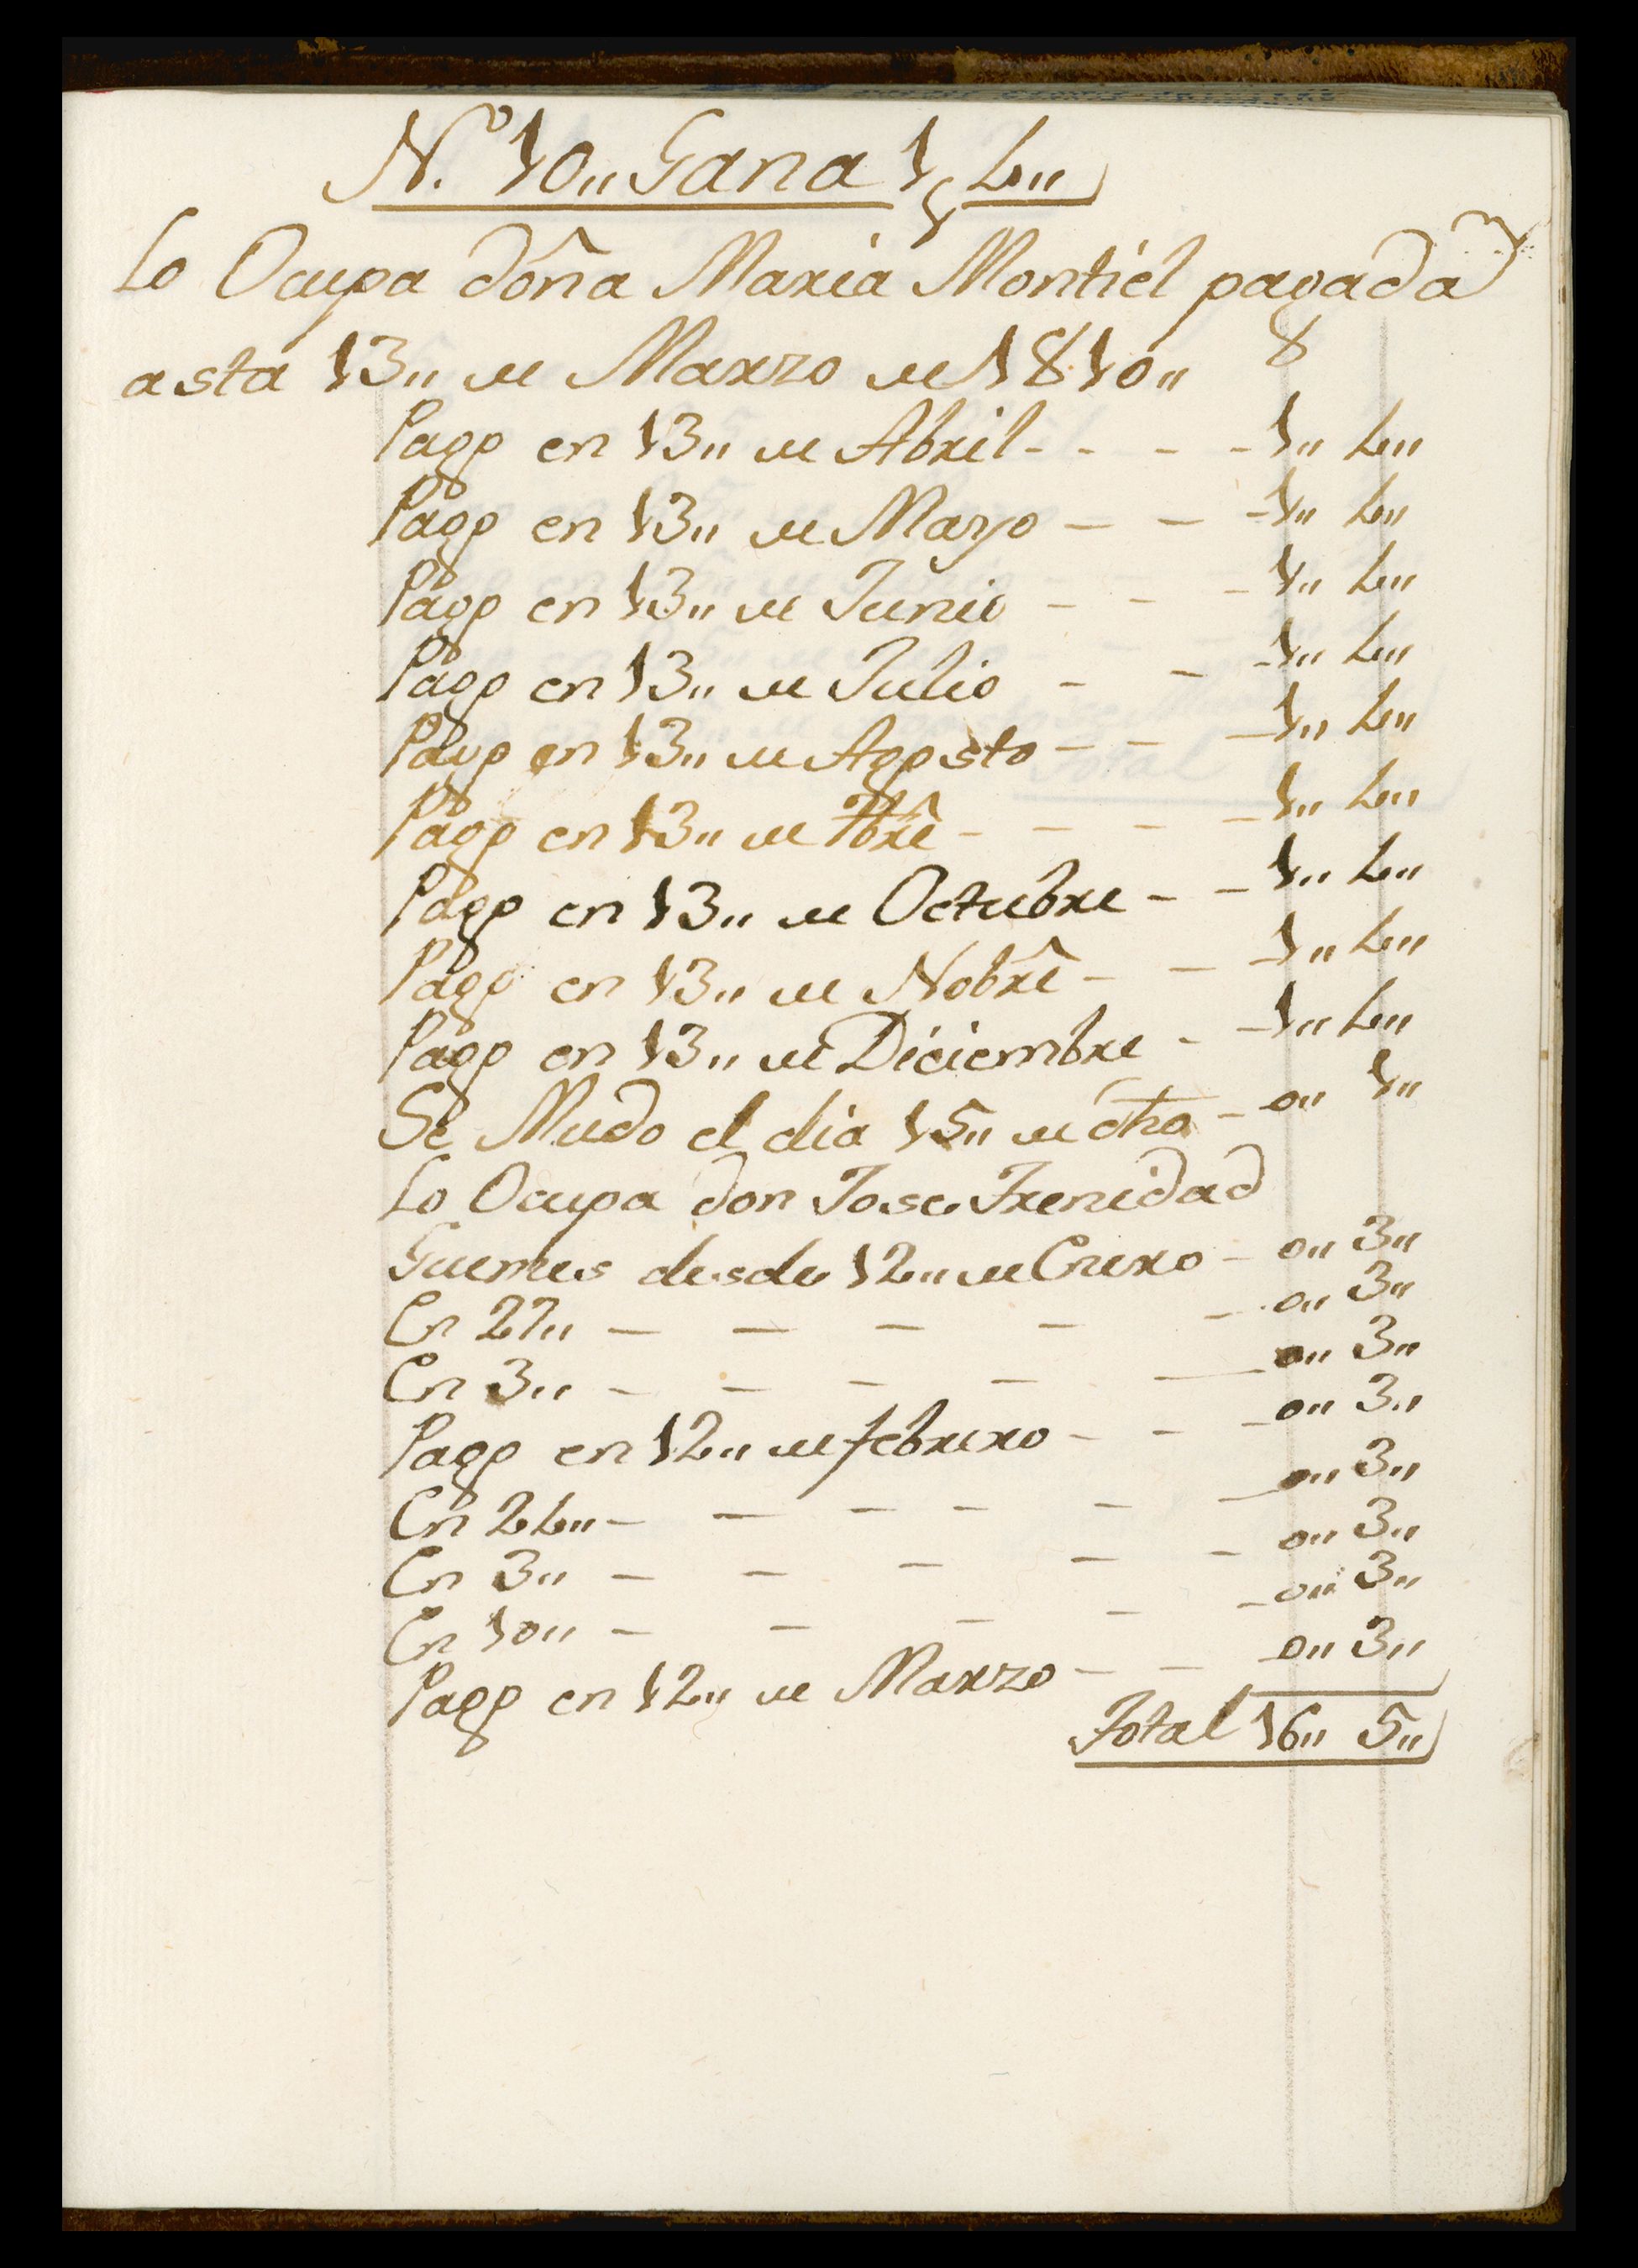 N.º 10,, Gana 1,, 4,,
Lo Ocupa doña Maria Montiel pagada
asta 13,, de Marzo de 1810,,
Pago en 13,, de Abril - - - - 1,, 4,,
Pago en 13,, de Mayo - - - 1,, 4,,
Pago en 13,, de Junio - - - 1,, 4,,
Pago en 13,, de Julio - - - 1,, 4,,
Pago en 13,, de Agosto - - - 1,, 4,,
Pago en 13,, de 7bre - - - - 1,, 4,,
Pago en 13,, de Octubre - - 1,, 4,,
Pago en 13,, de Nobre - - - 1,, 4,,
Pago en 13,, de Diciembre - - 1,, 4,,
Se Mudo el dia 15,, de dho - 0,, 1,,
Lo Ocupa don Jose Trenidad
Guemes desde 12,, de Enero - 0,, 3,,
En 27,, - - - - - 0,, 3,,
En 3,, - - - - - 0,, 3,,
Pago en 12,, de febrero - - - 0,, 3,,
En 24,, - - - - - - 0,, 3,,
En 3,, - - - - - 0,, 3,,
En 10,, - - - - - 0,, 3,,
Pago en 12,, de Marzo - - - 0,, 3,,
Total 16,, 5,,